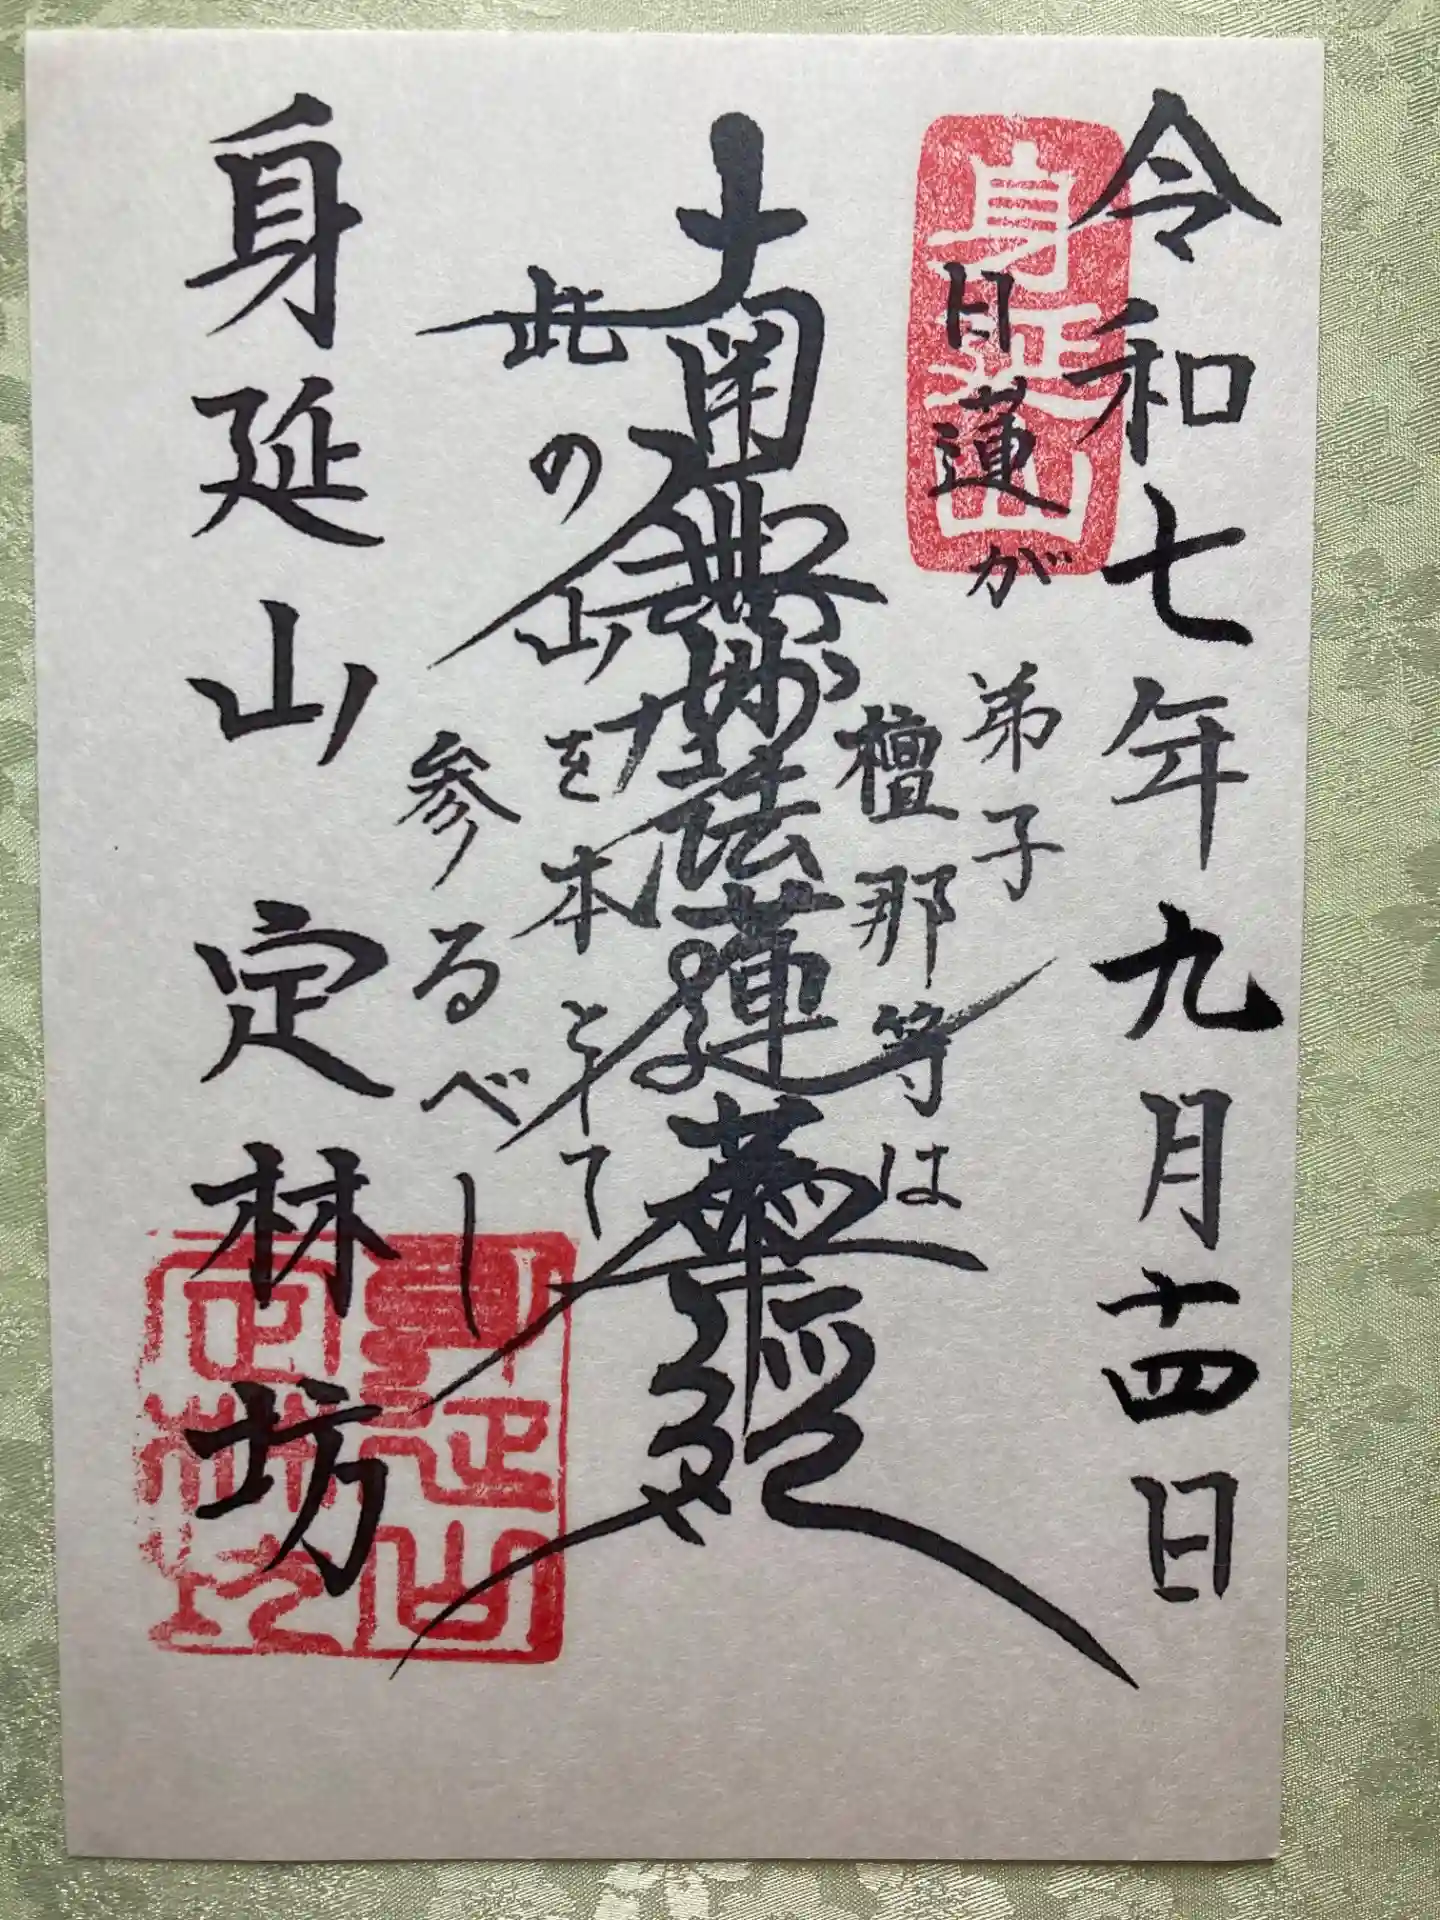 令和七年九月十四日
身延山
日蓮が
弟子
檀那等は
南無妙法蓮華経
此の山を本として
参るべし
身延山 定林坊
身延山
定林坊